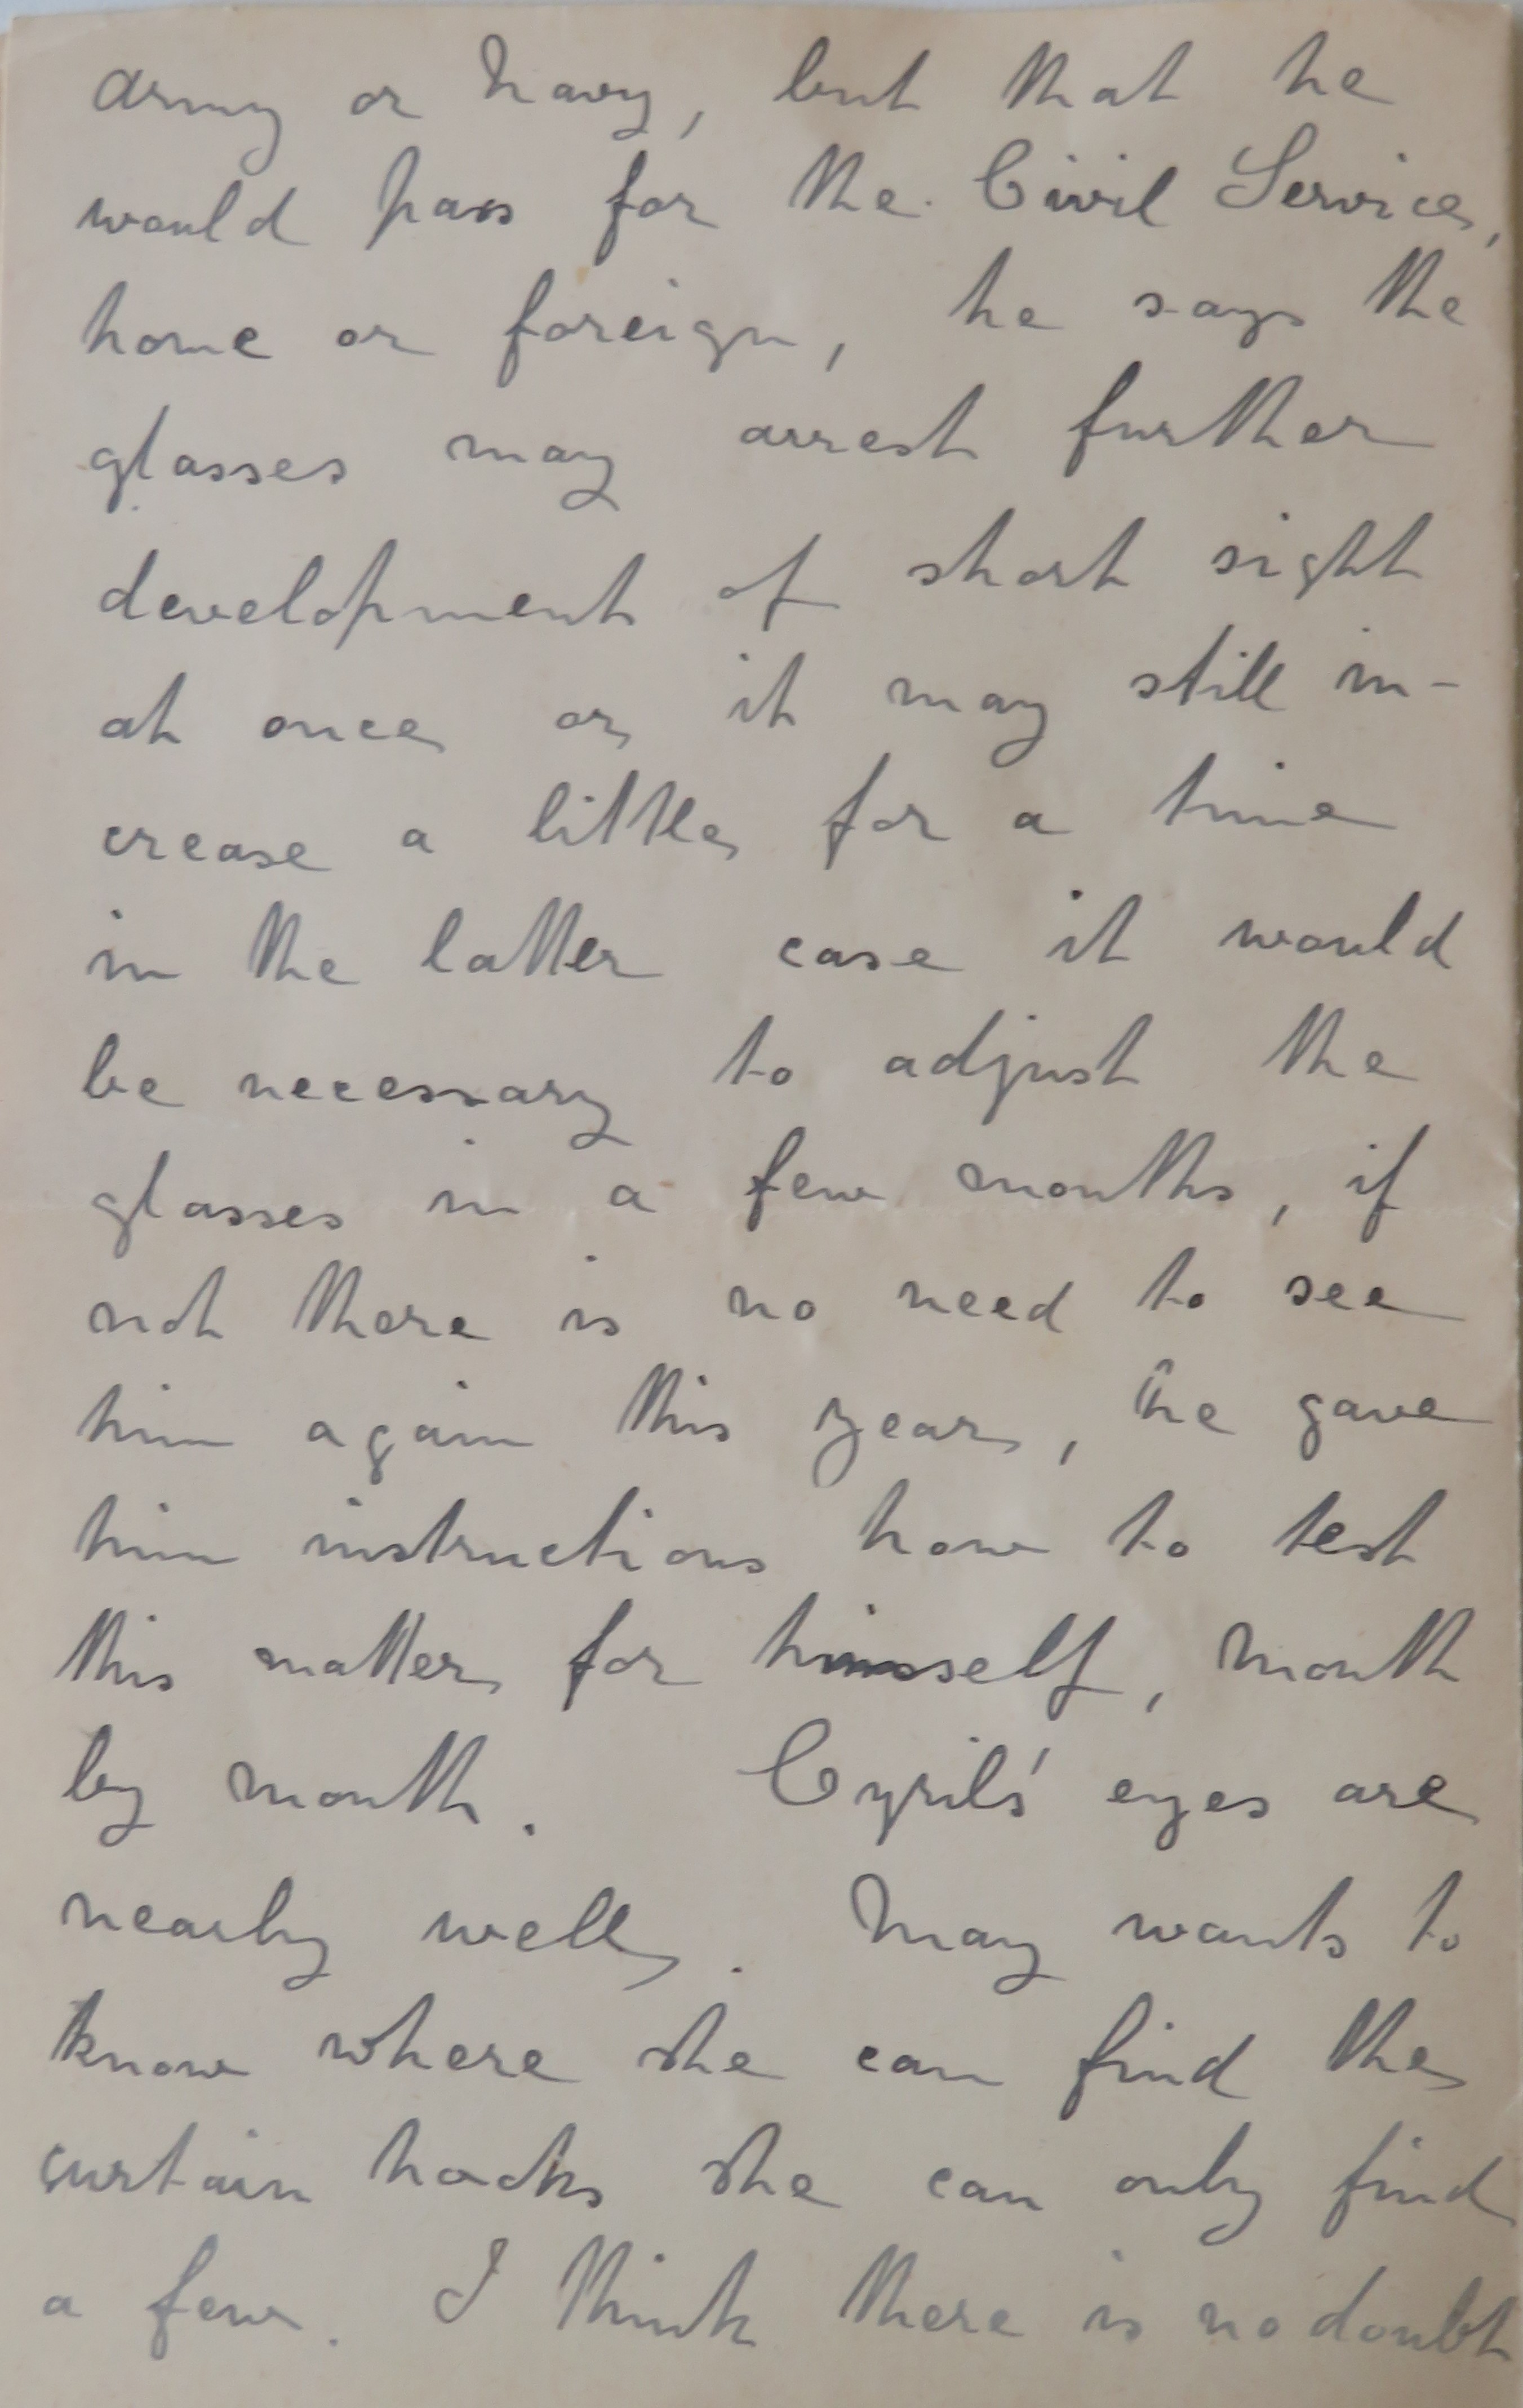 army or navy, but that he
would pass for the Civil Service,
home or foreign, he says the
glasses may arrest further
development of short sight
at once or it may still in-
crease a little for a time
in the latter case it would
be necessary to adjust the
glasses in a few months, if
not there is no need to see
him again this year, he gave
him instructions how to test
this matter for himself, month
by month. Cyrils' eyes are
nearly well. May wants to
know where she can find the
curtain hooks she can only find
a few. I think there is no doubt